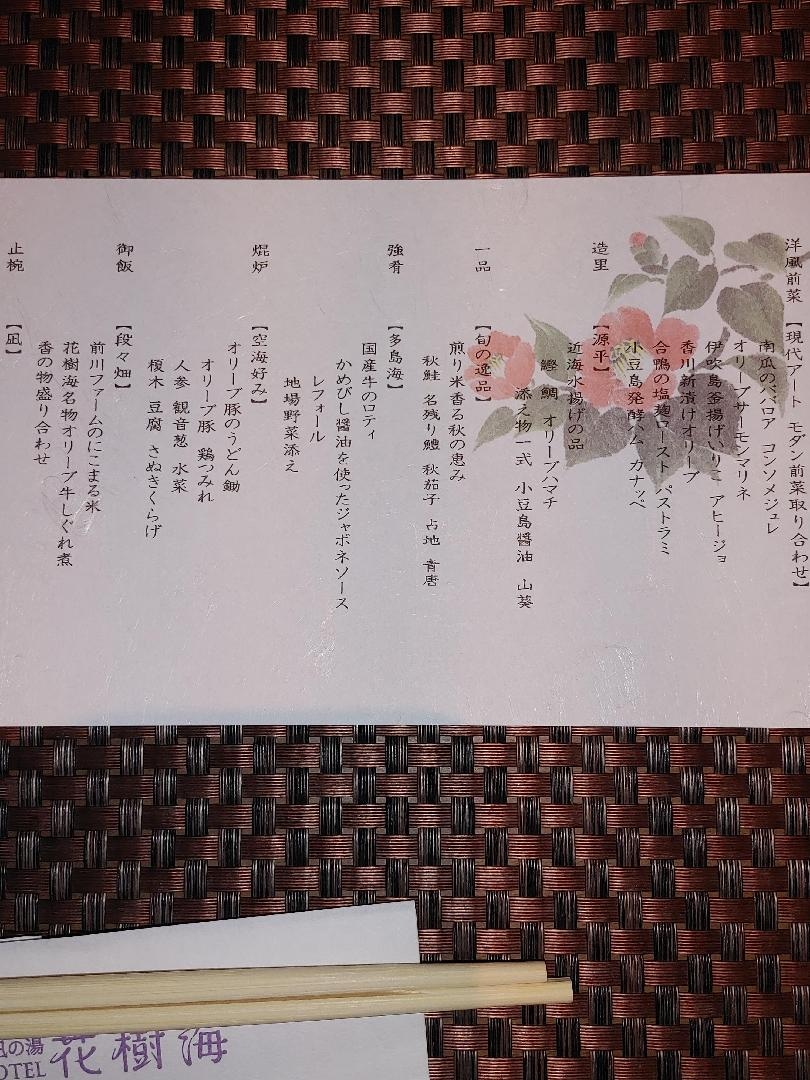 洋風前菜 【現代アート モダン前菜取り合わせ】
南瓜のババロア コンソメジュレ
オリーブサーモンマリネ
伊吹島釜揚げいりこ アヒージョ
香川新漬けオリーブ
合鴨の塩麹ロースト パストラミ
小豆島発酵ハム カナッペ
造里 【源平】
近海水揚げの品
鰹 鯛 オリーブハマチ
添え物一式 小豆島醤油 山葵
一品 【旬の逸品】
煎り米香る秋の恵み
秋鮭 名残り鱧 秋茄子 占地 青唐
強肴 【多島海】
国産牛のロティ
かめびし醤油を使ったジャポネソース
レフォール
地場野菜添え
焜炉 【空海好み】
オリーブ豚のうどん鋤
オリーブ豚 鶏つみれ
人参 観音葱 水菜
榎木 豆腐 さぬきくらげ
御飯 【段々畑】
前川ファームのにこまる米
花樹海名物オリーブ牛しぐれ煮
香の物盛り合わせ
止椀 【凪】
の湯 花樹海
OTEL